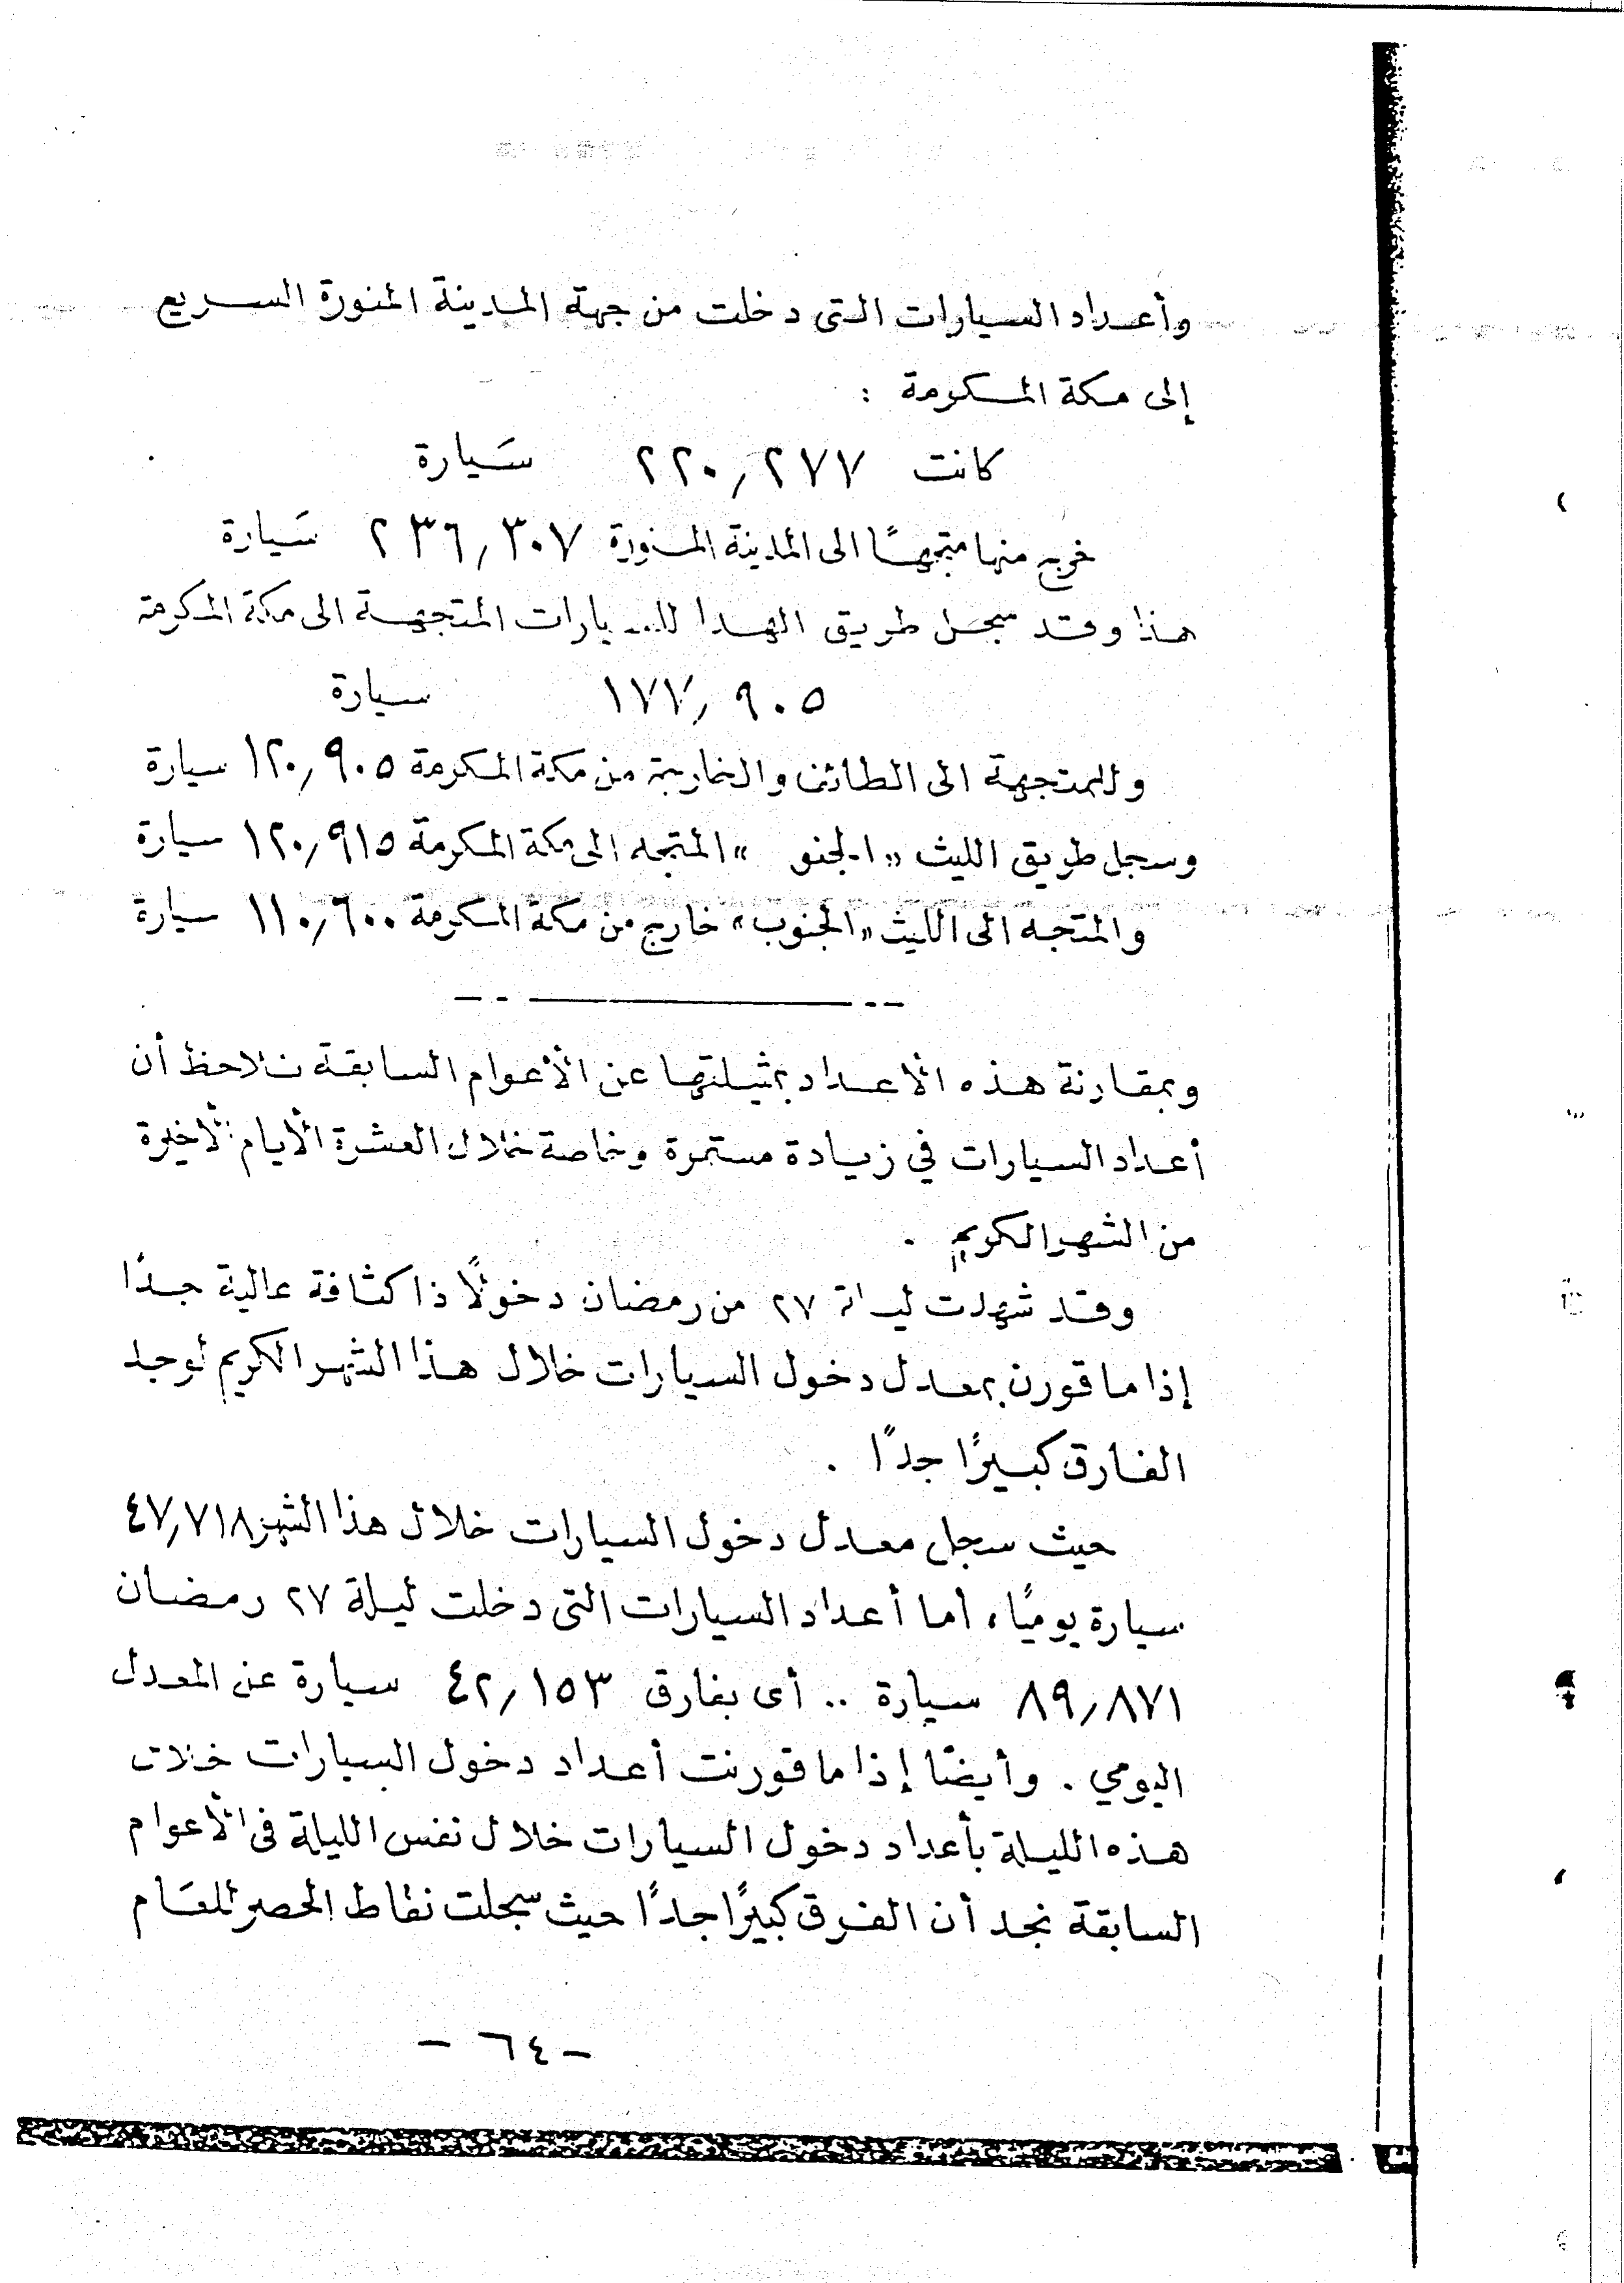 وأعداد السيارات التى دخلت من جهة المدينة المنورة السريع
إلى مكة المكرمة :
كانت ٢٢٠٫٢٧٧ سيارة
خرج منها متجهًا الى المدينة المنورة ٢٣٦٫٣٠٧ سيارة
هذا وقد سجل طريق الهدا للسيارات المتجهة الى مكة المكرمة
١٧٧٫٩٠٥ سيارة
وللمتجهة الى الطائف والخارجة من مكة المكرمة ١٢٠٫٩٠٥ سيارة
وسجل طريق الليث «الجنو » المتجه الى مكة المكرمة ١٢٠٫٩١٥ سيارة
والمتجه الى الليث «الجنوب» خارج من مكة المكرمة ١١٠٫٦٠٠ سيارة
وبمقارنة هذه الأعداد بمثيلتها عن الأعوام السابقة نلاحظ أن
أعداد السيارات في زيادة مستمرة وخاصة خلال العشرة الأيام الأخيرة
من الشهر الكريم .
وقد شهدت ليلة ٢٧ من رمضان دخولًا ذا كثافة عالية جدًا
إذا ما قورن بمعدل دخول السيارات خلال هذا الشهر الكريم لوجد
الفارق كبيرًا جدًا .
حيث سجل معدل دخول السيارات خلال هذا الشهر ٤٧٫٧١٨
سيارة يوميًا، أما أعداد السيارات التى دخلت ليلة ٢٧ رمضان
٨٩٫٨٧١ سيارة .. أى بفارق ٤٢٫١٥٣ سيارة عن المعدل
اليومي . وأيضًا إذا ما قورنت أعداد دخول السيارات خلال
هذه الليلة بأعداد دخول السيارات خلال نفس الليلة فى الأعوام
السابقة نجد أن الفرق كبيرًا جدًا حيث سجلت نقاط الحصر للعام
- ٦٤ -